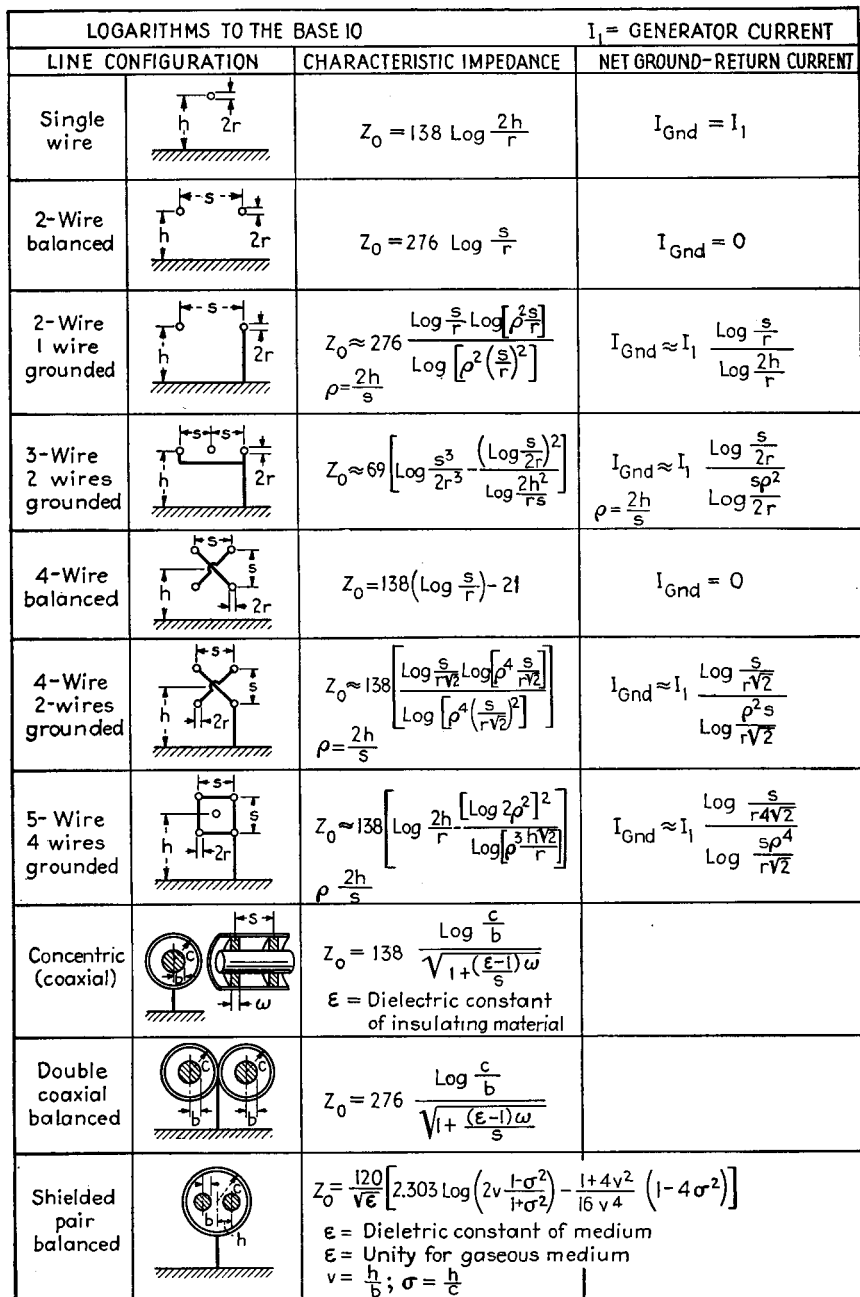 LOGARITHMS TO THE BASE 10 I₁ = GENERATOR CURRENT
LINE CONFIGURATION CHARACTERISTIC IMPEDANCE NET GROUND-RETURN CURRENT
Single wire
h 2r
Z₀ = 138 Log 2h/r
I_Gnd = I₁
2-Wire balanced
s h 2r
Z₀ = 276 Log s/r
I_Gnd = 0
2-Wire 1 wire grounded
s h 2r
Z₀ ≈ 276 (Log s/r Log[ρ² s/r]) / (Log [ρ² (s/r)²])
ρ = 2h/s
I_Gnd ≈ I₁ (Log s/r) / (Log 2h/r)
3-Wire 2 wires grounded
s s h 2r
Z₀ ≈ 69 [Log s³/2r³ - (Log s/2r)² / (Log 2h²/rs)]
I_Gnd ≈ I₁ (Log s/2r) / (Log sρ²/2r)
ρ = 2h/s
4-Wire balanced
s s h 2r
Z₀ = 138(Log s/r) - 21
I_Gnd = 0
4-Wire 2-wires grounded
s s h 2r
Z₀ ≈ 138 [(Log s/r√2 Log[ρ⁴ s/r√2]) / (Log [ρ⁴ (s/r√2)²])]
ρ = 2h/s
I_Gnd ≈ I₁ (Log s/r√2) / (Log ρ²s/r√2)
5-Wire 4 wires grounded
s s h 2r
Z₀ ≈ 138 [Log 2h/r - [Log 2ρ²]² / (Log[ρ³ h√2/r])]
ρ 2h/s
I_Gnd ≈ I₁ (Log s/r4√2) / (Log sρ⁴/r√2)
Concentric (coaxial)
c b s ω
Z₀ = 138 (Log c/b) / √(1 + (ε-1)ω/s)
ε = Dielectric constant
of insulating material
Double coaxial balanced
c c b b
Z₀ = 276 (Log c/b) / √(1 + (ε-1)ω/s)
Shielded pair balanced
c b h
Z₀ = 120/√ε [2.303 Log (2v (1-σ²)/(1+σ²)) - (1+4v²)/(16v⁴) (1-4σ²)]
ε = Dieletric constant of medium
ε = Unity for gaseous medium
v = h/b; σ = h/c